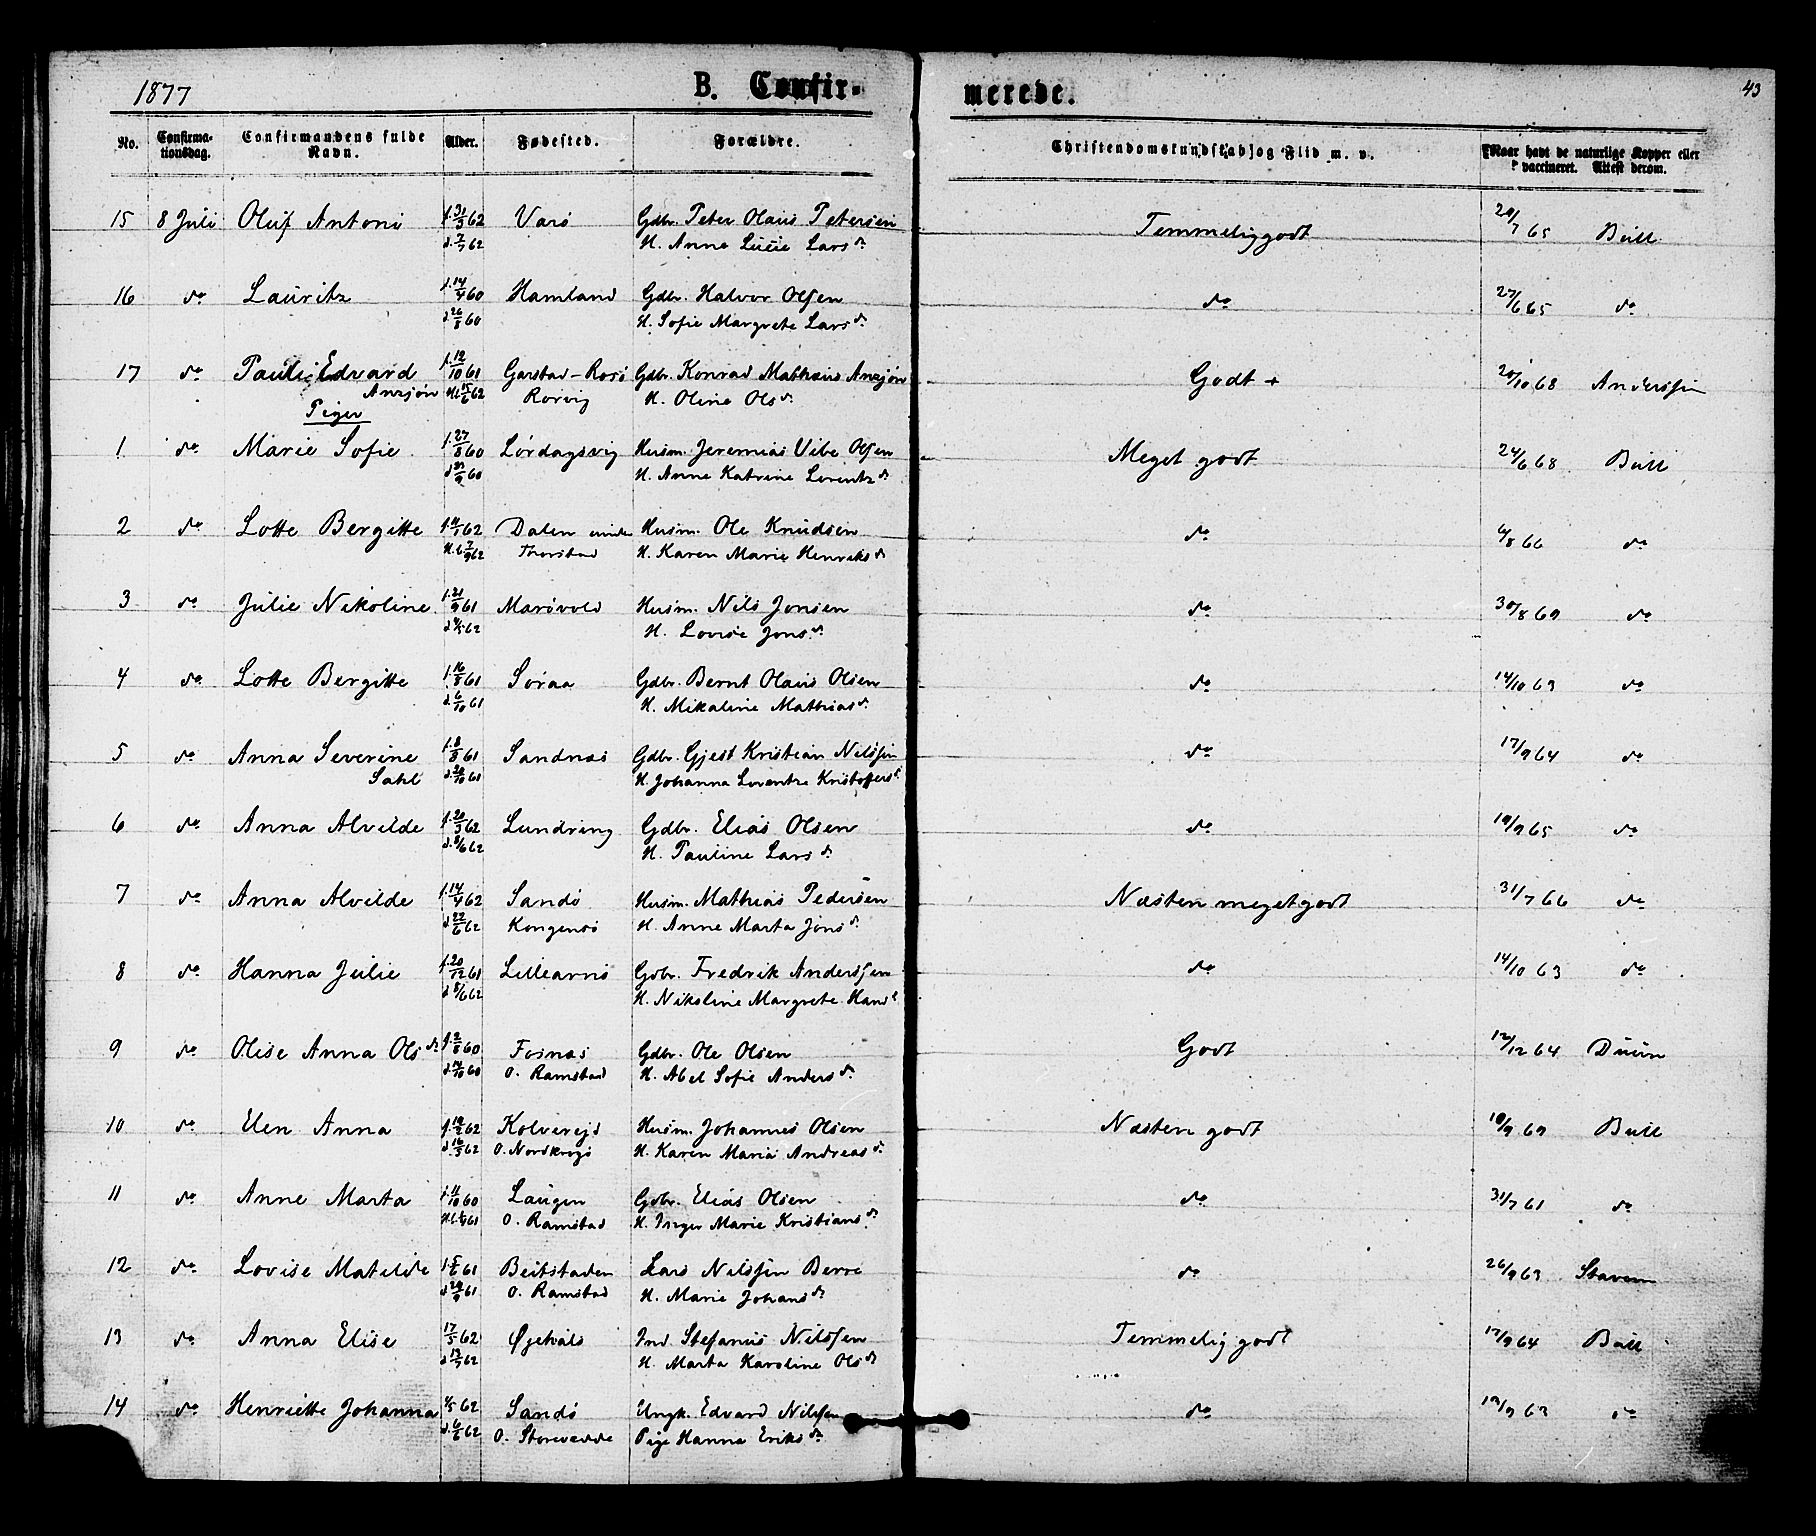 1877
B. Confir-
merede.
43
No.
Confirma-
tionsdag.
Confirmandens fulde
Navn.
Alder.
Fødested.
Forældre.
Christendomskundskab og Flid m. v.
Naar havt de naturlige Kopper eller
vaccineret. Attest derom.
15 8 Juli Oluf Antoni f. 31/3 62 Varø Gdbr. Peter Olaus Petersen Temmelig godt 20/7 65 Bull
d. 2/7 62 H. Anne Lucie Lars d.
16 do Lauritz f. 14/4 60 Hamland Gdbr. Halvor Olsen do 27/6 65 do
d. 26/8 60 H. Sofie Margrete Lars d.
17 do Paul Edvard f. 12/10 61 Garstad - Rosø Gdbr. Konrad Mathæus Anzjøn Godt + 20/10 68 Anderssen
Anzjøn H.d. 15/6 62 Rørvig H. Oline Ols d.
Piger
1 do Marie Sofie f. 27/8 60 Lørdagsvig Husm. Jeremias Vibe Olsen Meget godt 24/6 68 Bull
d. 30/9 60 H. Anne Katrine Lorentz d.
2 do Lotte Bergitte f. 11/1 62 Dalen under Husm. Ole Knudsen do 6/8 66 do
H.d. 7/9 62 Thorstad H. Karen Marie Henriks d.
3 do Julie Nikoline f. 21/9 61 Marøvold Husm. Nils Jonsen do 30/8 69 do
d. 4/5 62 H. Lovise Jons d.
4 do Lotte Bergitte f. 16/8 61 Søraa Gdbr. Bernt Olaus Olsen do 14/10 63 do
d. 6/10 61 H. Mikaline Mathias d.
5 do Anna Severine f. 8/9 61 Sandnæs Gdbr. Gjest Kristian Nilssen do 17/9 64 do
Sahl d. 20/10 61 H. Johanna Lorentze Kristoffers d.
6 do Anna Alvilde f. 20/3 62 Lundring Gdbr. Elias Olsen do 19/9 65 do
d. 8/6 62 H. Pauline Lars d.
7 do Anna Alvilde f. 14/4 62 Sandø Husm. Mathias Pedersen Næsten meget godt 31/7 66 do
d. 22/6 62 Kongensø H. Anne Marta Jons d.
8 do Hanna Julie f. 20/12 61 Lillearnø Gdbr. Fredrik Anderssen do 14/10 63 do
d. 8/6 62 H. Nikoline Margrete Hans d.
9 do Olise Anna Ols d. f. 2/8 60 Fosnæs Gdbr. Ole Olsen Godt 12/12 64 Duun
d. 14/10 60 O. Ramstad H. Abel Sofie Anders d.
10 do Elen Anna f. 19/2 62 Kolvereid Husm. Johannes Olsen Næsten godt 18/9 69 Bull
d. 16/3 62 O. Nordkrogs H. Karen Maria Andreas d.
11 do Anne Marta f. 11/10 60 Laugen Gdbr. Elias Olsen do 31/7 61 do
O. Ramstad H. Inger Marie Kristians d.
12 do Lovise Matilde f. 5/6 61 Beitstaden Lars Nilssen Berre do 26/9 63 Stavem
d. 29/9 61 O. Ramstad H. Marie Johans d.
13 do Anna Elise 17/5 62 Øgehals Ind. Stefanus Nilssen Temmelig godt 17/9 64 Bull
d. 13/7 62 H. Marta Karoline Ols d.
14 do Henriette Johanna 4/5 62 Sandø Ungk. Edvard Nilssen do 19/9 63 do
d. 6/6 62 O. Storevedde Pige Hanna Eriks d.